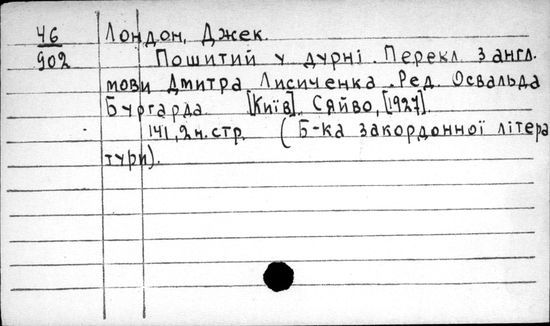 46 Лондон, Джек.
902 Пошитий у дурні. Перекл. з англ.
мови Дмитра Лисиченка. Ред. Освальда
Бургарда. [Київ]. Сяйво, [1927].
141, 2н.стр. (Б-ка закордонної літера
тури).